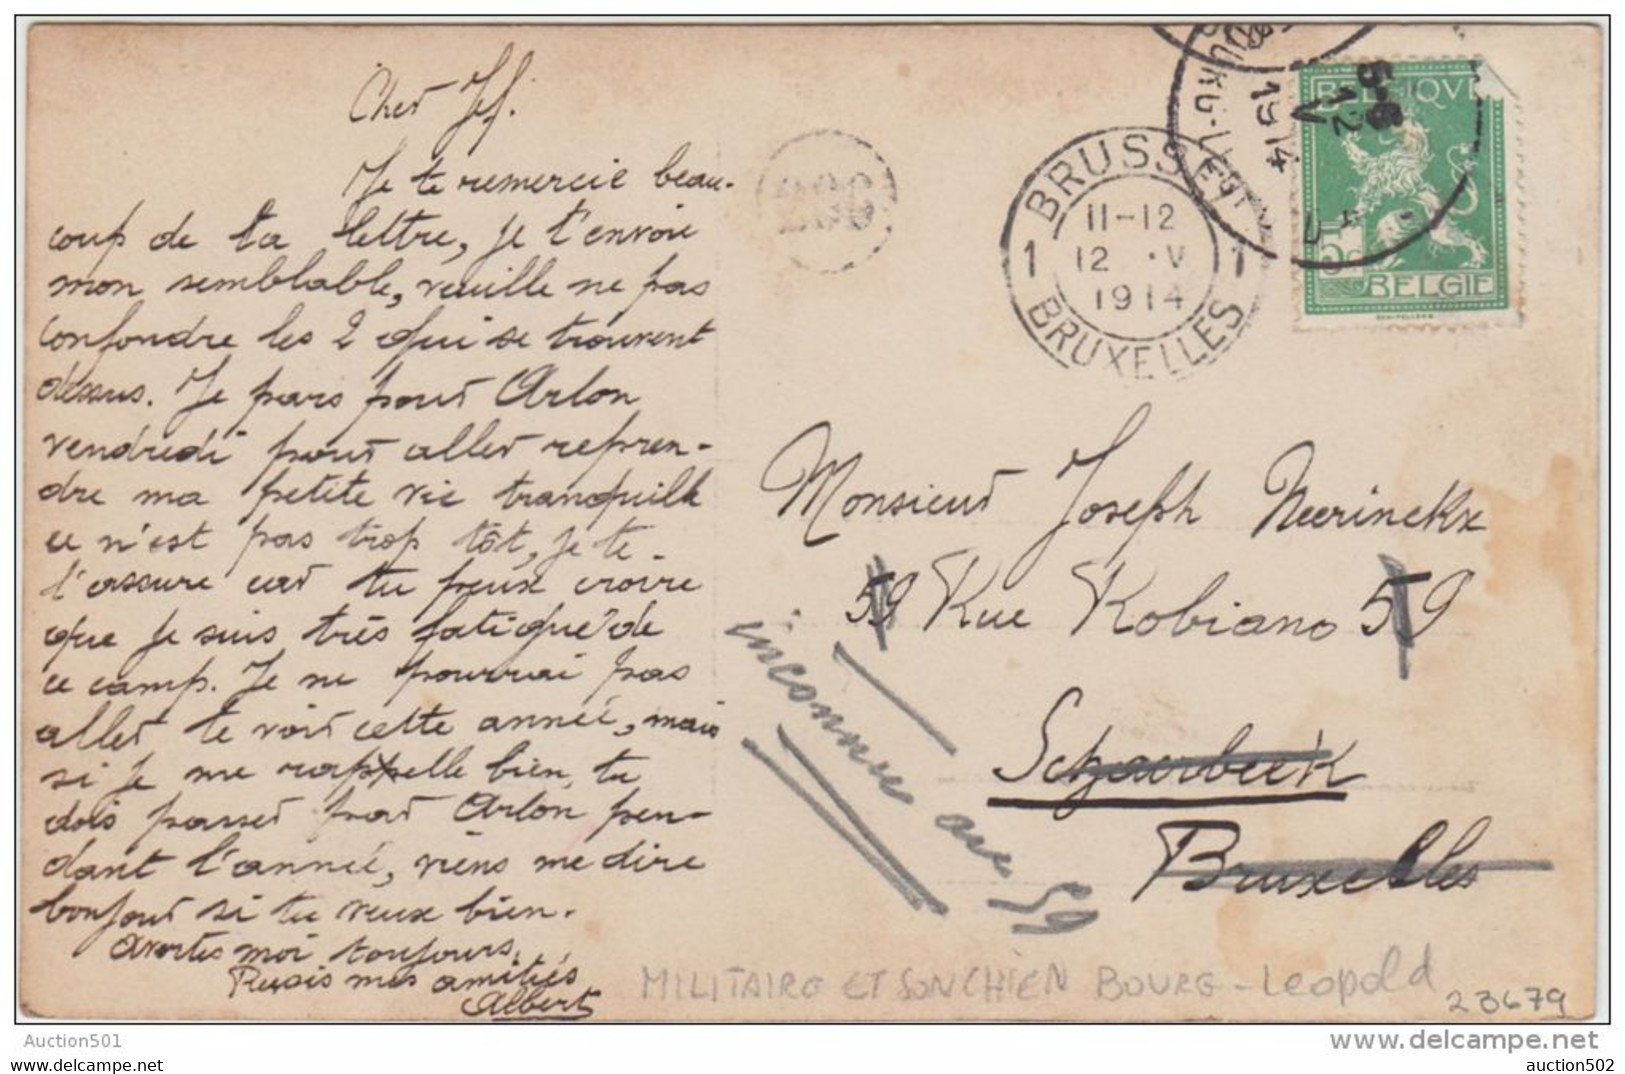 Cher Jef.
Je te remercie beau-
coup de ta lettre, je t'envoie
mon semblable, veuille ne pas
confondre les 2 qui se trouvent
dessus. Je pars pour Arlon
vendredi pour aller repren-
dre ma petite vie tranquille
ce n'est pas trop tôt, je te
l'assure car tu peux croire
que je suis très fatigué de
ce camp. Je ne pourrai pas
aller te voir cette année, mais
si je me rappelle bien, tu
dois passer par Arlon pen-
dant l'année, viens me dire
bonjour si tu veux bien.
moi toujours,
mes amitiés
Albert
BRUSSEL
1 11-12 1
12 V
1914
BRUXELLES
5-6
12
V
1914
BELGIQUE
5c
BELGIE
Monsieur Joseph Neerinckx
59 Rue Robiano 59
Schaerbeek
Bruxelles
inconnu au 59
MILITAIRE ET SON CHIEN BOURG-Leopold
23679
Auction501
www.delcampe.net
auction502